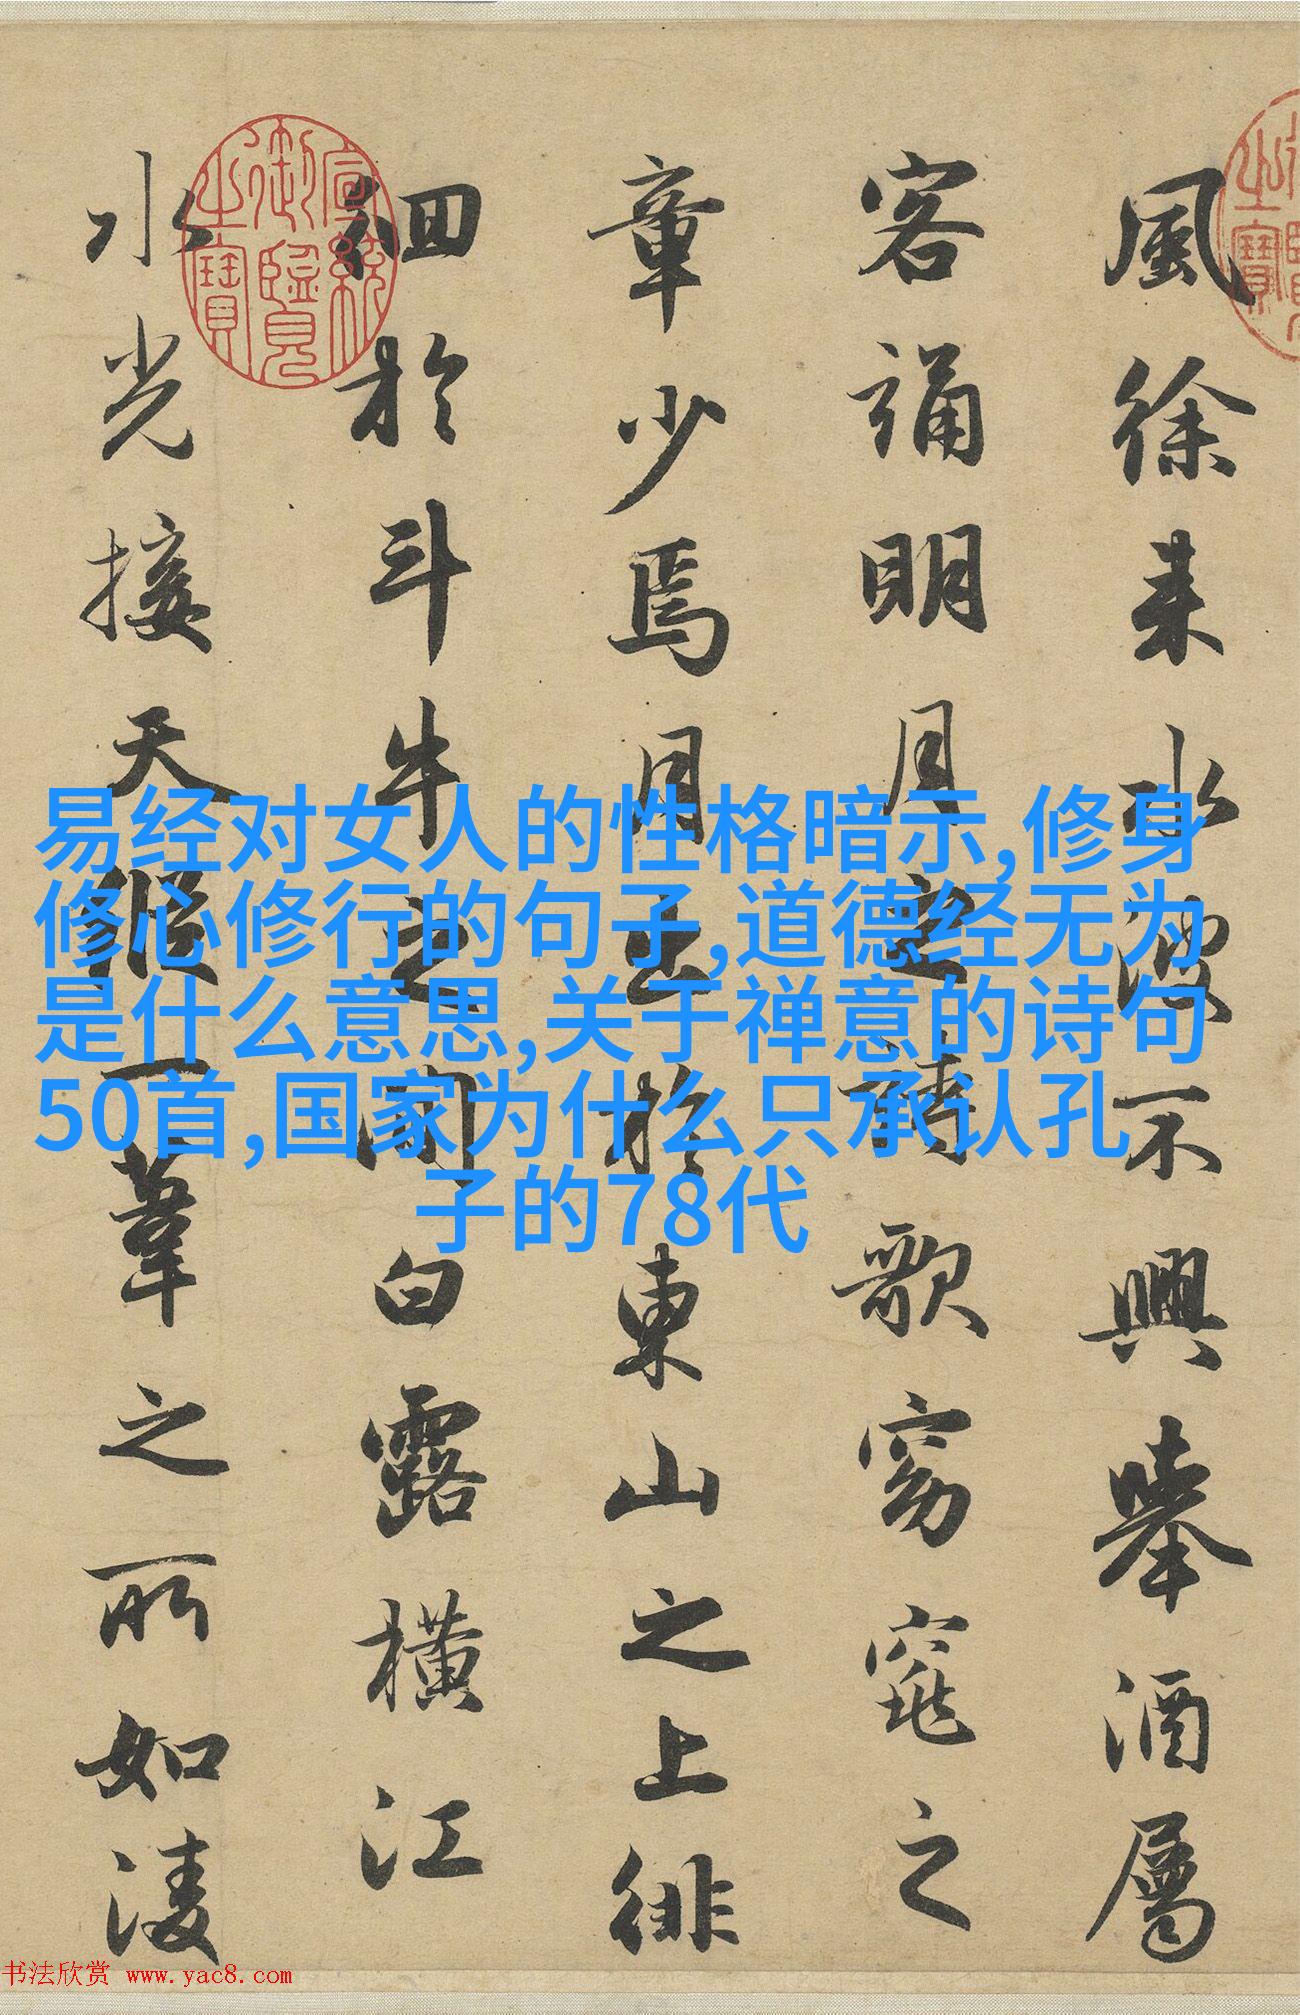 風徐来水波不興舉酒屬
客誦明月之詩歌窈窕之
章少焉月出於東山之上徘
徊於斗牛之間白露橫江
水光接天縱一葦之所如淩
宣統御覽之寶
易经对女人的性格暗示,修身
修心修行的句子,道德经无为
是什么意思,关于禅意的诗句
50首,国家为什么只承认孔
子的78代
书法欣赏 www.yac8.com